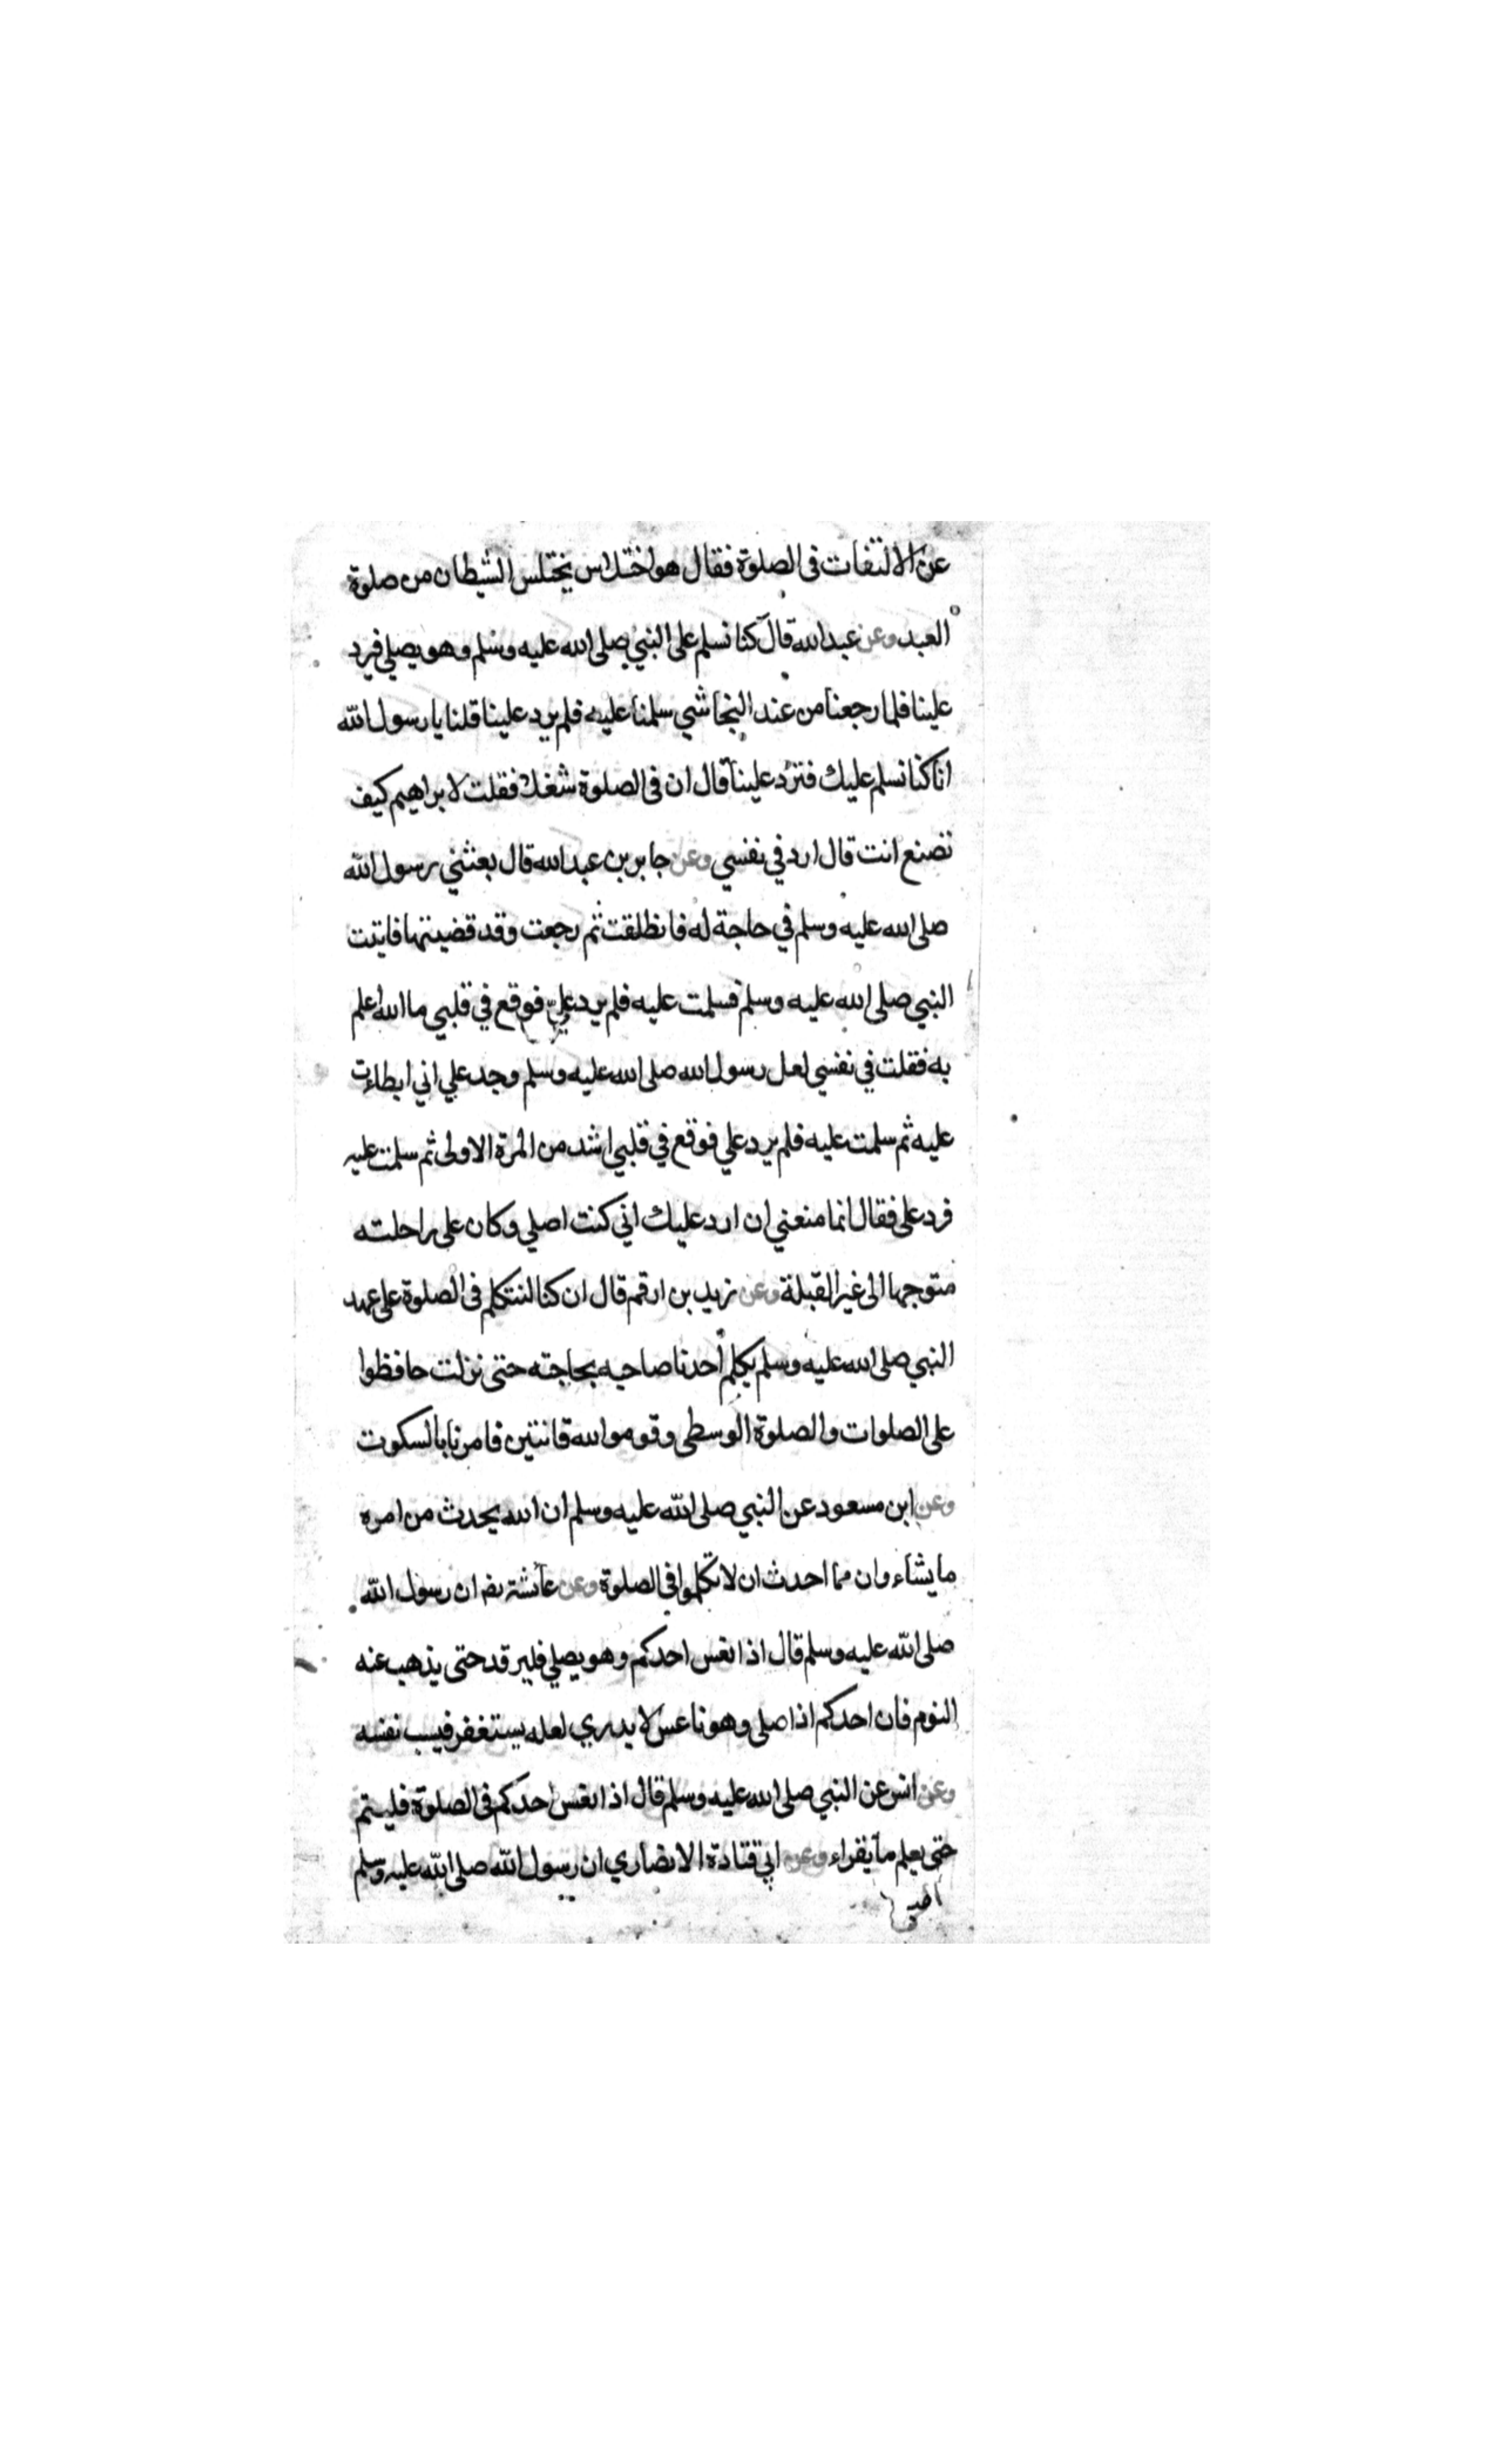 عن الالتفات فى الصلوة فقال هو اختلاس يختلس الشيطان من صلوة
العبد وعن عبد الله قال كنا نسلم على النبي صلى الله عليه وسلم وهو يصلي فيرد
علينا فلما رجعنا من عند النجاشي سلمنا عليه فلم يرد علينا قلنا يا رسول الله
انا كنا نسلم عليك فترد علينا قال ان فى الصلوة شغلا فقلت لابراهيم كيف
تصنع انت قال ارد في نفسي وعن جابر بن عبد الله قال بعثني رسول الله
صلى الله عليه وسلم في حاجة له فانطلقت ثم رجعت وقد قضيتها فاتيت
النبي صلى الله عليه وسلم فسلمت عليه فلم يرد علي فوقع في قلبي ما الله اعلم
به فقلت في نفسي لعل رسول الله صلى الله عليه وسلم وجد علي اني ابطاءت
عليه ثم سلمت عليه فلم يرد علي فوقع في قلبي اشد من المرة الاولى ثم سلمت عليه
فرد على فقال انما منعني ان ارد عليك اني كنت اصلي وكان على راحلته
متوجها الى غير القبلة وعن زيد بن ارقم قال ان كنا لنتكلم فى الصلوة على عهد
النبي صلى الله عليه وسلم يكلم أحدنا صاحبه بحاجته حتى نزلت حافظوا
على الصلوات والصلوة الوسطى وقوموا لله قانتين فامرنا بالسكوت
وعن ابن مسعود عن النبي صلى الله عليه وسلم ان الله يحدث من امره
ما يشاء وان مما احدث ان لا تكلموا فى الصلوة وعن عائشة رضه ان رسول الله
صلى الله عليه وسلم قال اذا نعس احدكم وهو يصلي فليرقد حتى يذهب عنه
النوم فان احدكم اذا صلى وهو ناعس لا يدري لعله يستغفر فيسب نفسه
وعن انس عن النبي صلى الله عليه وسلم قال اذا نعس احدكم فى الصلوة فلينم
حتى يعلم ما يقراء وعن ابي قتادة الانصاري ان رسول الله صلى الله عليه وسلم